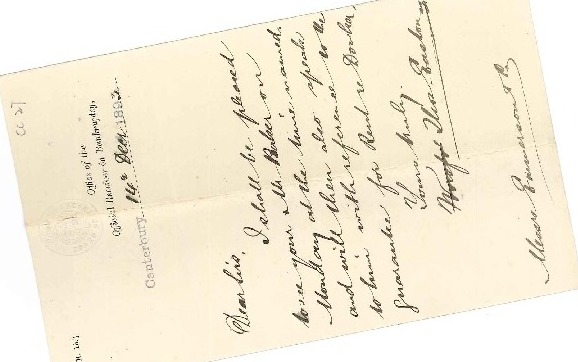 CC 27
Office of the
Official Receiver in Bankruptcy,
Canterbury 14th Decr. 1892
Dear Sirs,
I shall be pleased
to see your Mr Parker on
Monday at the time named
and will then also speak
to him with reference to the
guarantee for Read re
Yours truly
Messrs Emmerson & Co